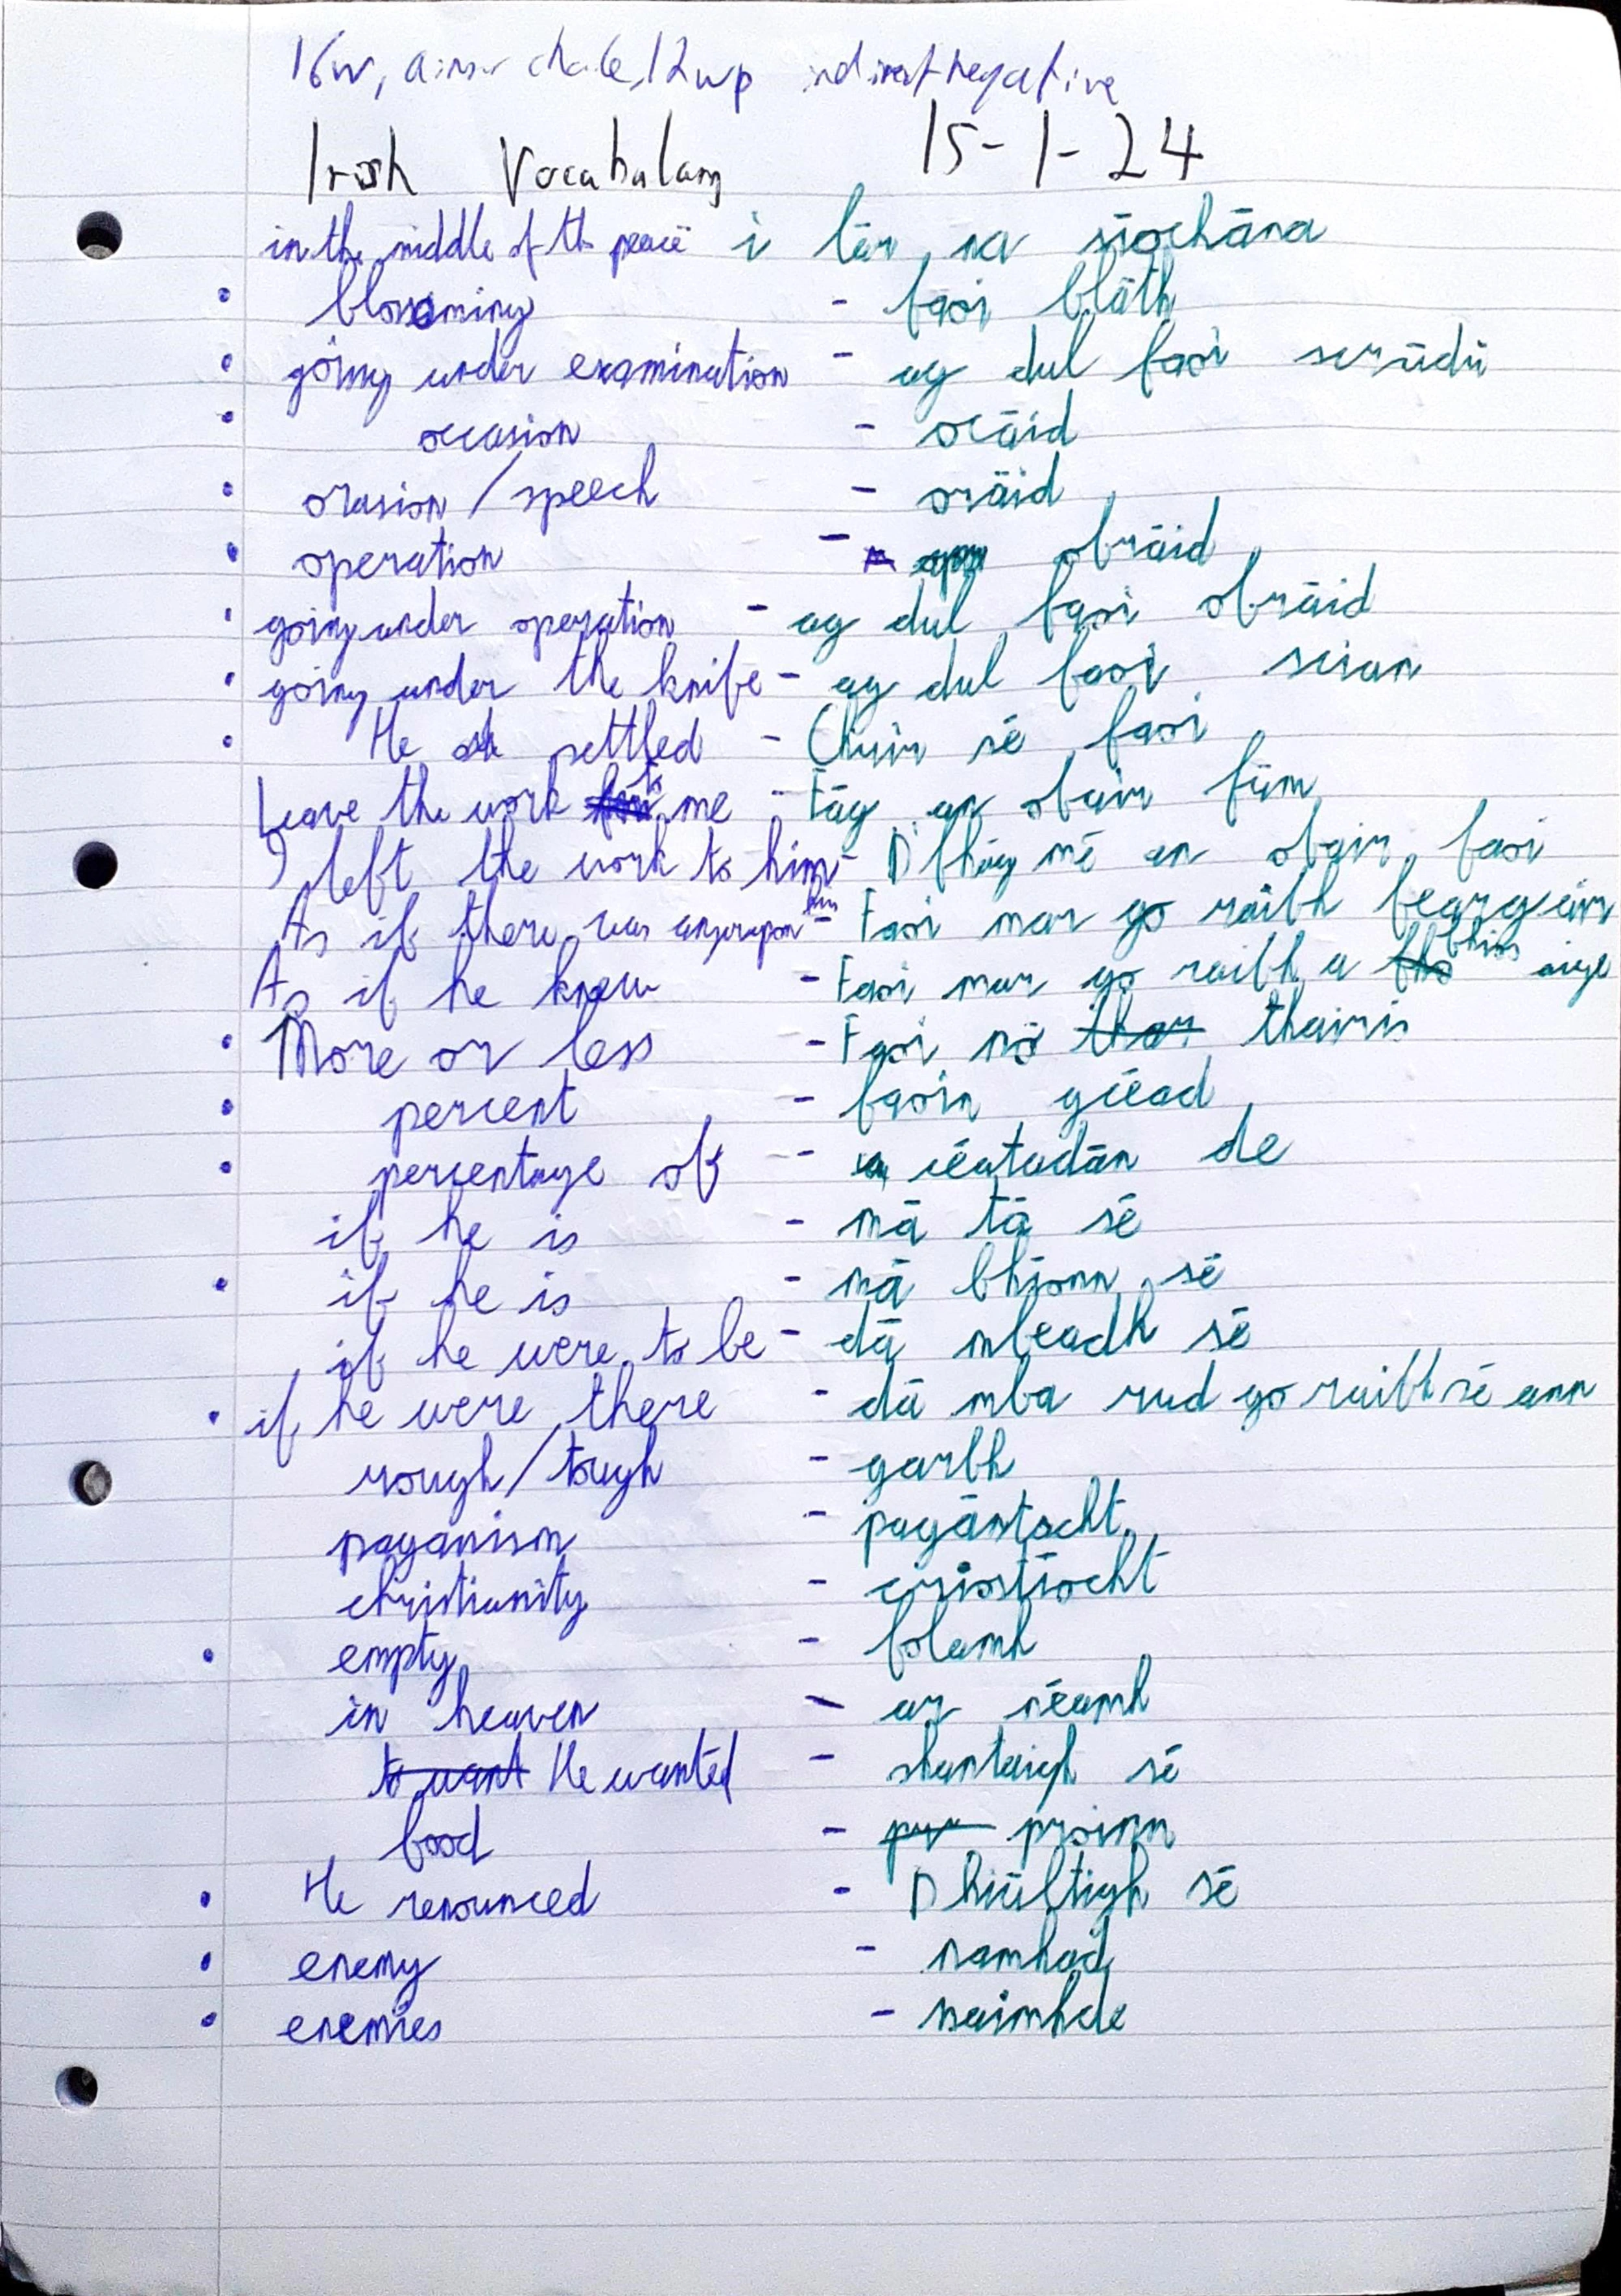 16w, aimsir chaite, 12wp indirect negative
Irish Vocabulary 15-1-24
in the middle of the peace i lár na síochána
• blossoming - faoi bláth
• going under examination - ag dul faoi scrúdú
• occasion - ocáid
• orasion / speech - oráid
• operation - obráid
• going under operation - ag dul faoi obráid
• going under the knife - ag dul faoi scian
• He settled - Chuir sé faoi
Leave the work to me - Fág an obair fúm
I left the work to him - D'fhág mé an obair faoi
As if there was anger upon him - Faoi mar go raibh fearg air
As if he knew - Faoi mar go raibh a fhios aige
• More or less - Faoi nó thar thairis
• percent - faoin gcéad
• percentage of - céatadán de
if he is - má tá sé
• if he is - má bhíonn sé
if he were to be - dá mbeadh sé
• if he were there - dá mba rud go raibh sé ann
rough / tough - garbh
paganism - pagántacht
christianity - críostíocht
• empty - folamh
in heaven - ar néamh
to want He wanted - shantaigh sé
food - proinn
• He renounced - Dhiúltigh sé
• enemy - namhad
• enemies - naimhde